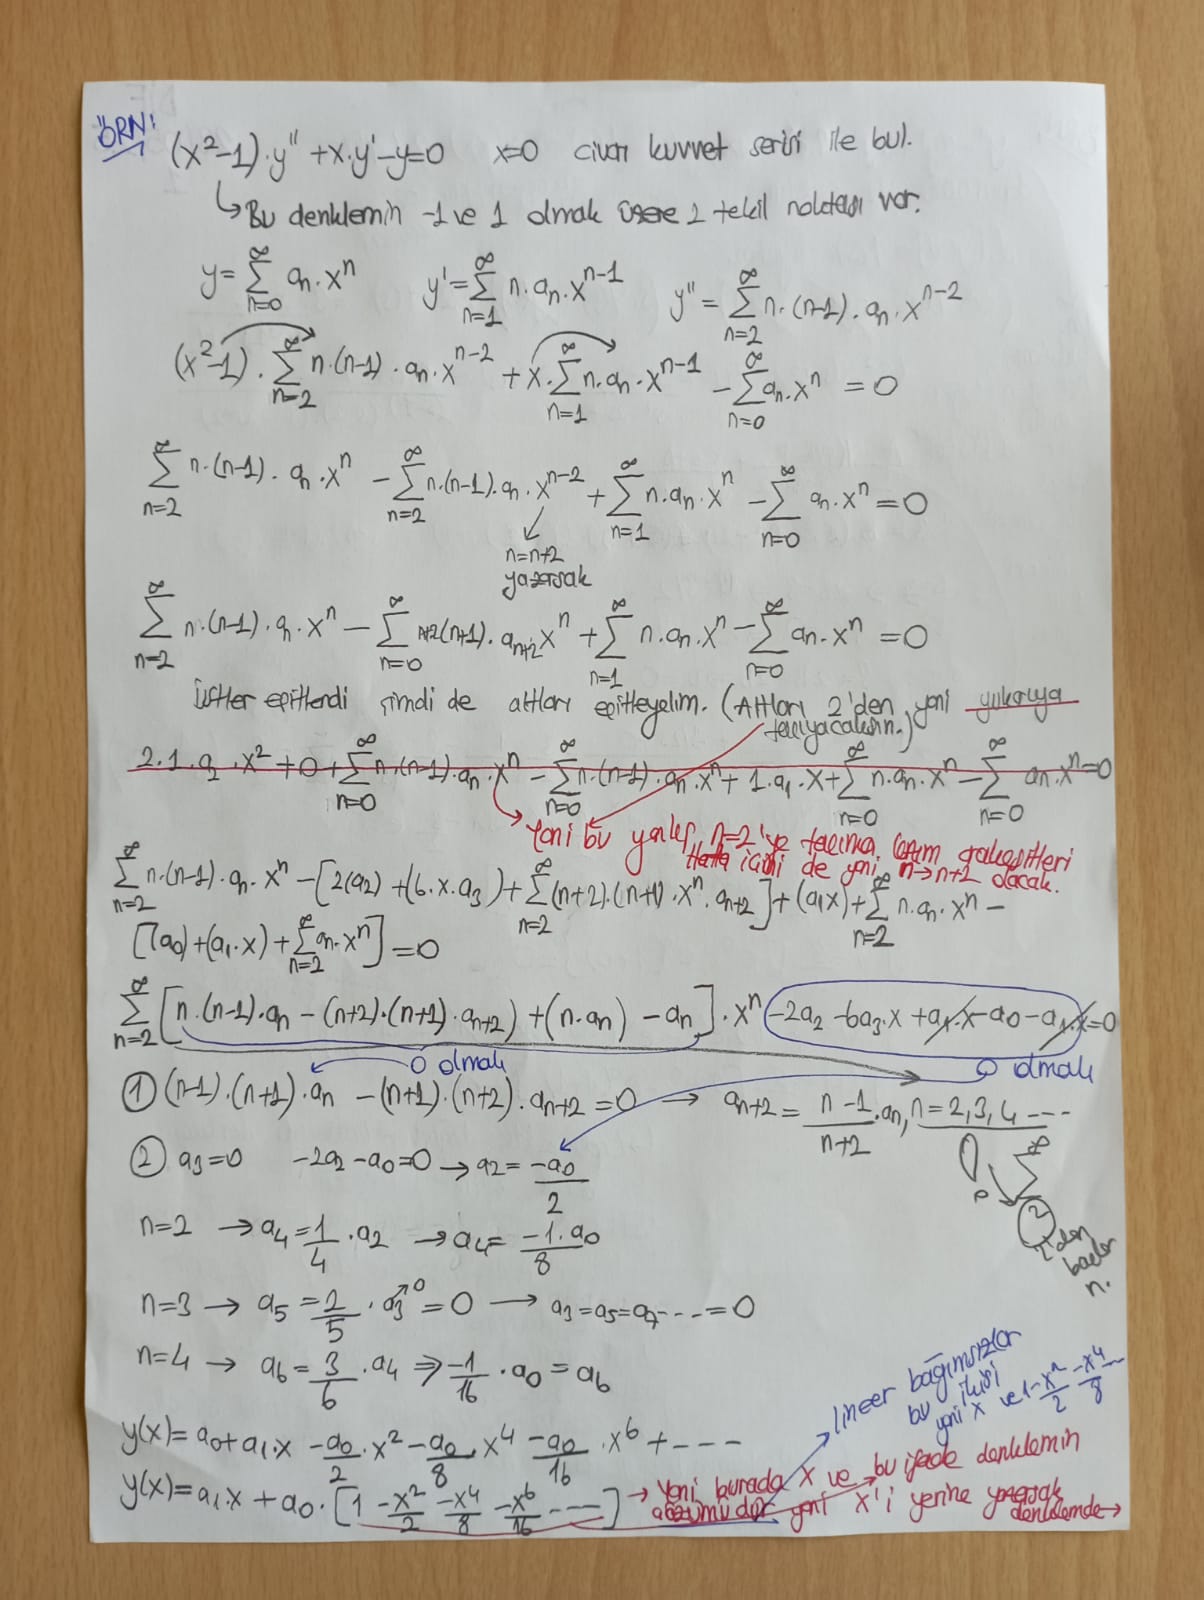 ÖRN:
(x²-1)·y'' + x·y' - y = 0   x=0 civarı kuvvet serisi ile bul.
↳ Bu denklemin -1 ve 1 olmak üzere 2 tekil noktası var.
y = ∑_{n=0}^{∞} aₙ·xⁿ   y' = ∑_{n=1}^{∞} n·aₙ·x^{n-1}   y'' = ∑_{n=2}^{∞} n·(n-1)·aₙ·x^{n-2}
(x²-1)·∑_{n=2}^{∞} n·(n-1)·aₙ·x^{n-2} + x·∑_{n=1}^{∞} n·aₙ·x^{n-1} - ∑_{n=0}^{∞} aₙ·xⁿ = 0
∑_{n=2}^{∞} n·(n-1)·aₙ·xⁿ - ∑_{n=2}^{∞} n·(n-1)·aₙ·x^{n-2} + ∑_{n=1}^{∞} n·aₙ·xⁿ - ∑_{n=0}^{∞} aₙ·xⁿ = 0
n=n+2
yazarsak
∑_{n=2}^{∞} n·(n-1)·aₙ·xⁿ - ∑_{n=0}^{∞} n+2(n+1)·a_{n+2} xⁿ + ∑_{n=1}^{∞} n·aₙ·xⁿ - ∑_{n=0}^{∞} aₙ·xⁿ = 0
Üstler eşitlendi şimdi de altları eşitleyelim. (Altları 2'den yani yukarıya
2·1·a₂·x² + 0 + ∑_{n=0}^{∞} n·(n-1)·aₙ·xⁿ - ∑_{n=0}^{∞} n·(n-1)·aₙ·xⁿ + 1·a₁·x + ∑_{n=0}^{∞} n·aₙ·xⁿ - ∑_{n=0}^{∞} aₙ·xⁿ = 0
Yani bu yanlış, n=2'ye
Hatta içini de yani n→n+2 olacak.
∑_{n=2}^{∞} n·(n-1)·aₙ·xⁿ - [2(a₂) + (6·x·a₃) + ∑_{n=2}^{∞} (n+2)·(n+1)·xⁿ·a_{n+2}] + (a₁x) + ∑_{n=2}^{∞} n·aₙ·xⁿ -
[(a₀) + (a₁·x) + ∑_{n=2}^{∞} aₙ·xⁿ] = 0
∑_{n=2}^{∞} [n·(n-1)·aₙ - (n+2)·(n+1)·a_{n+2}) + (n·aₙ) - aₙ]·xⁿ - 2a₂ - 6a₃·x + a₁·x - a₀ - a₁·x = 0
0 olmalı   0 olmalı
① (n-1)·(n+1)·aₙ - (n+1)·(n+2)·a_{n+2} = 0 → a_{n+2} = \frac{n-1}{n+2}·aₙ, n=2,3,4 ----
② a₃=0   -2a₂ - a₀ = 0 → a₂ = \frac{-a₀}{2}
∑ ∞ 2
2'den
n.
n=2 → a₄ = \frac{1}{4}·a₂ → a₄ = \frac{-1·a₀}{8}
n=3 → a₅ = \frac{2}{5}·a₃ ↗0 = 0 → a₃=a₅=a₇---- = 0
n=4 → a₆ = \frac{3}{6}·a₄ ⇒ \frac{-1}{16}·a₀ = a₆
lineer bağımsızlar
bu ikisi
yani x ve 1-\frac{x²}{2} - \frac{x⁴}{8} ---
y(x) = a₀ + a₁·x - \frac{a₀}{2}·x² - \frac{a₀}{8} x⁴ - \frac{a₀}{16}·x⁶ + ----
y(x) = a₁x + a₀·[1 - \frac{x²}{2} - \frac{x⁴}{8} - \frac{x⁶}{16} ----]
→ Yani burada x ve bu ifade denklemin
çözümüdür yani x'i yerine yazarsak
denklemde →